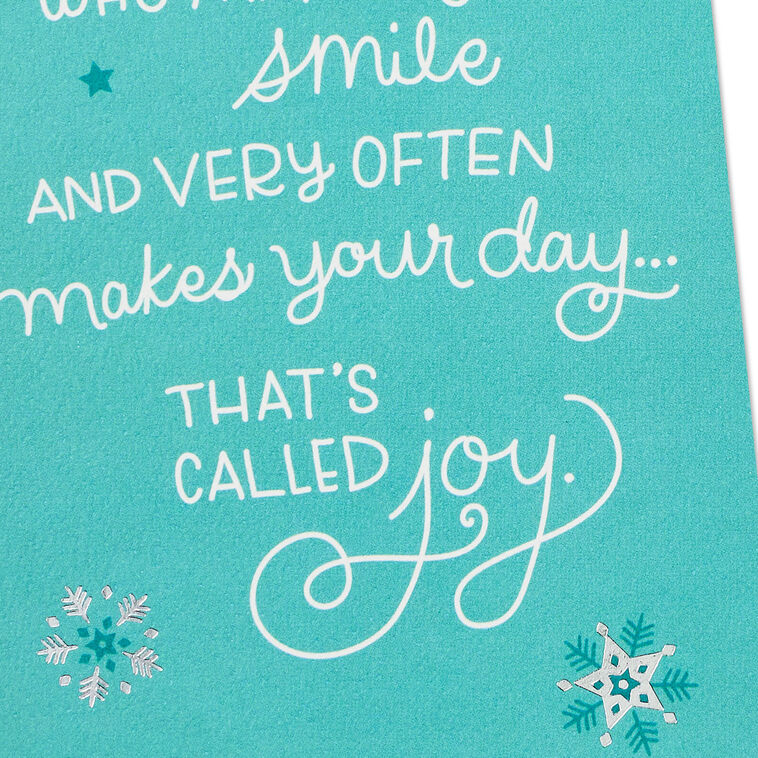 smile
AND VERY OFTEN
makes your day...
THAT'S
CALLED joy.